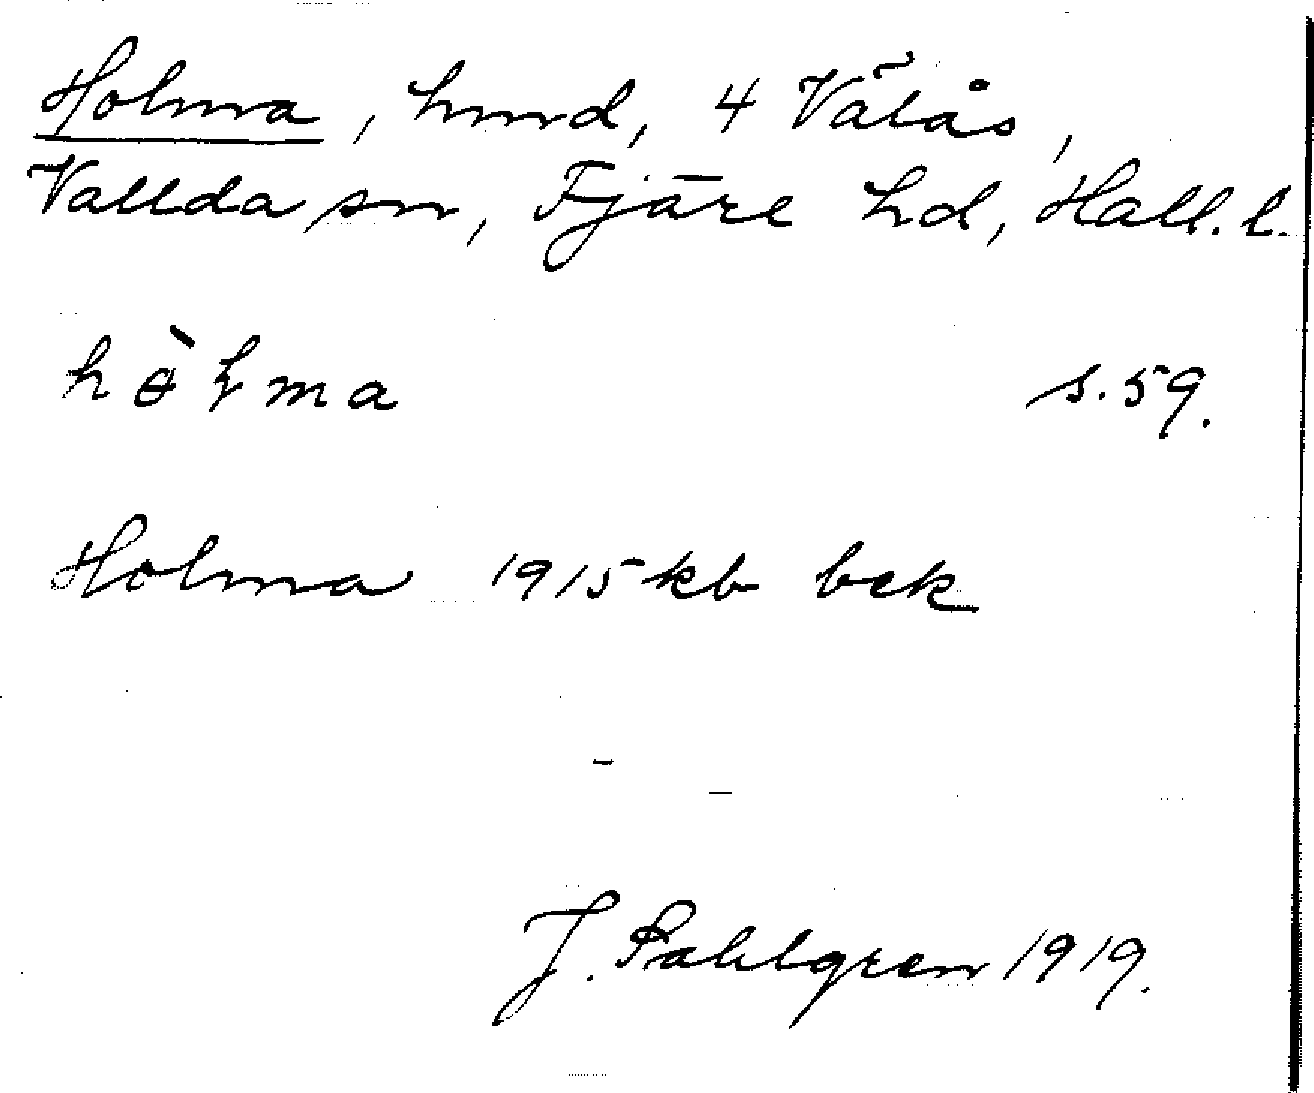 Holma, hmd, 4 Välås,
Vallda sn, Fjäre hd, Hall. l.
hɵ̀ɫma s.59.
Holma 1915 kb bek
J. Sahlgren 1919.